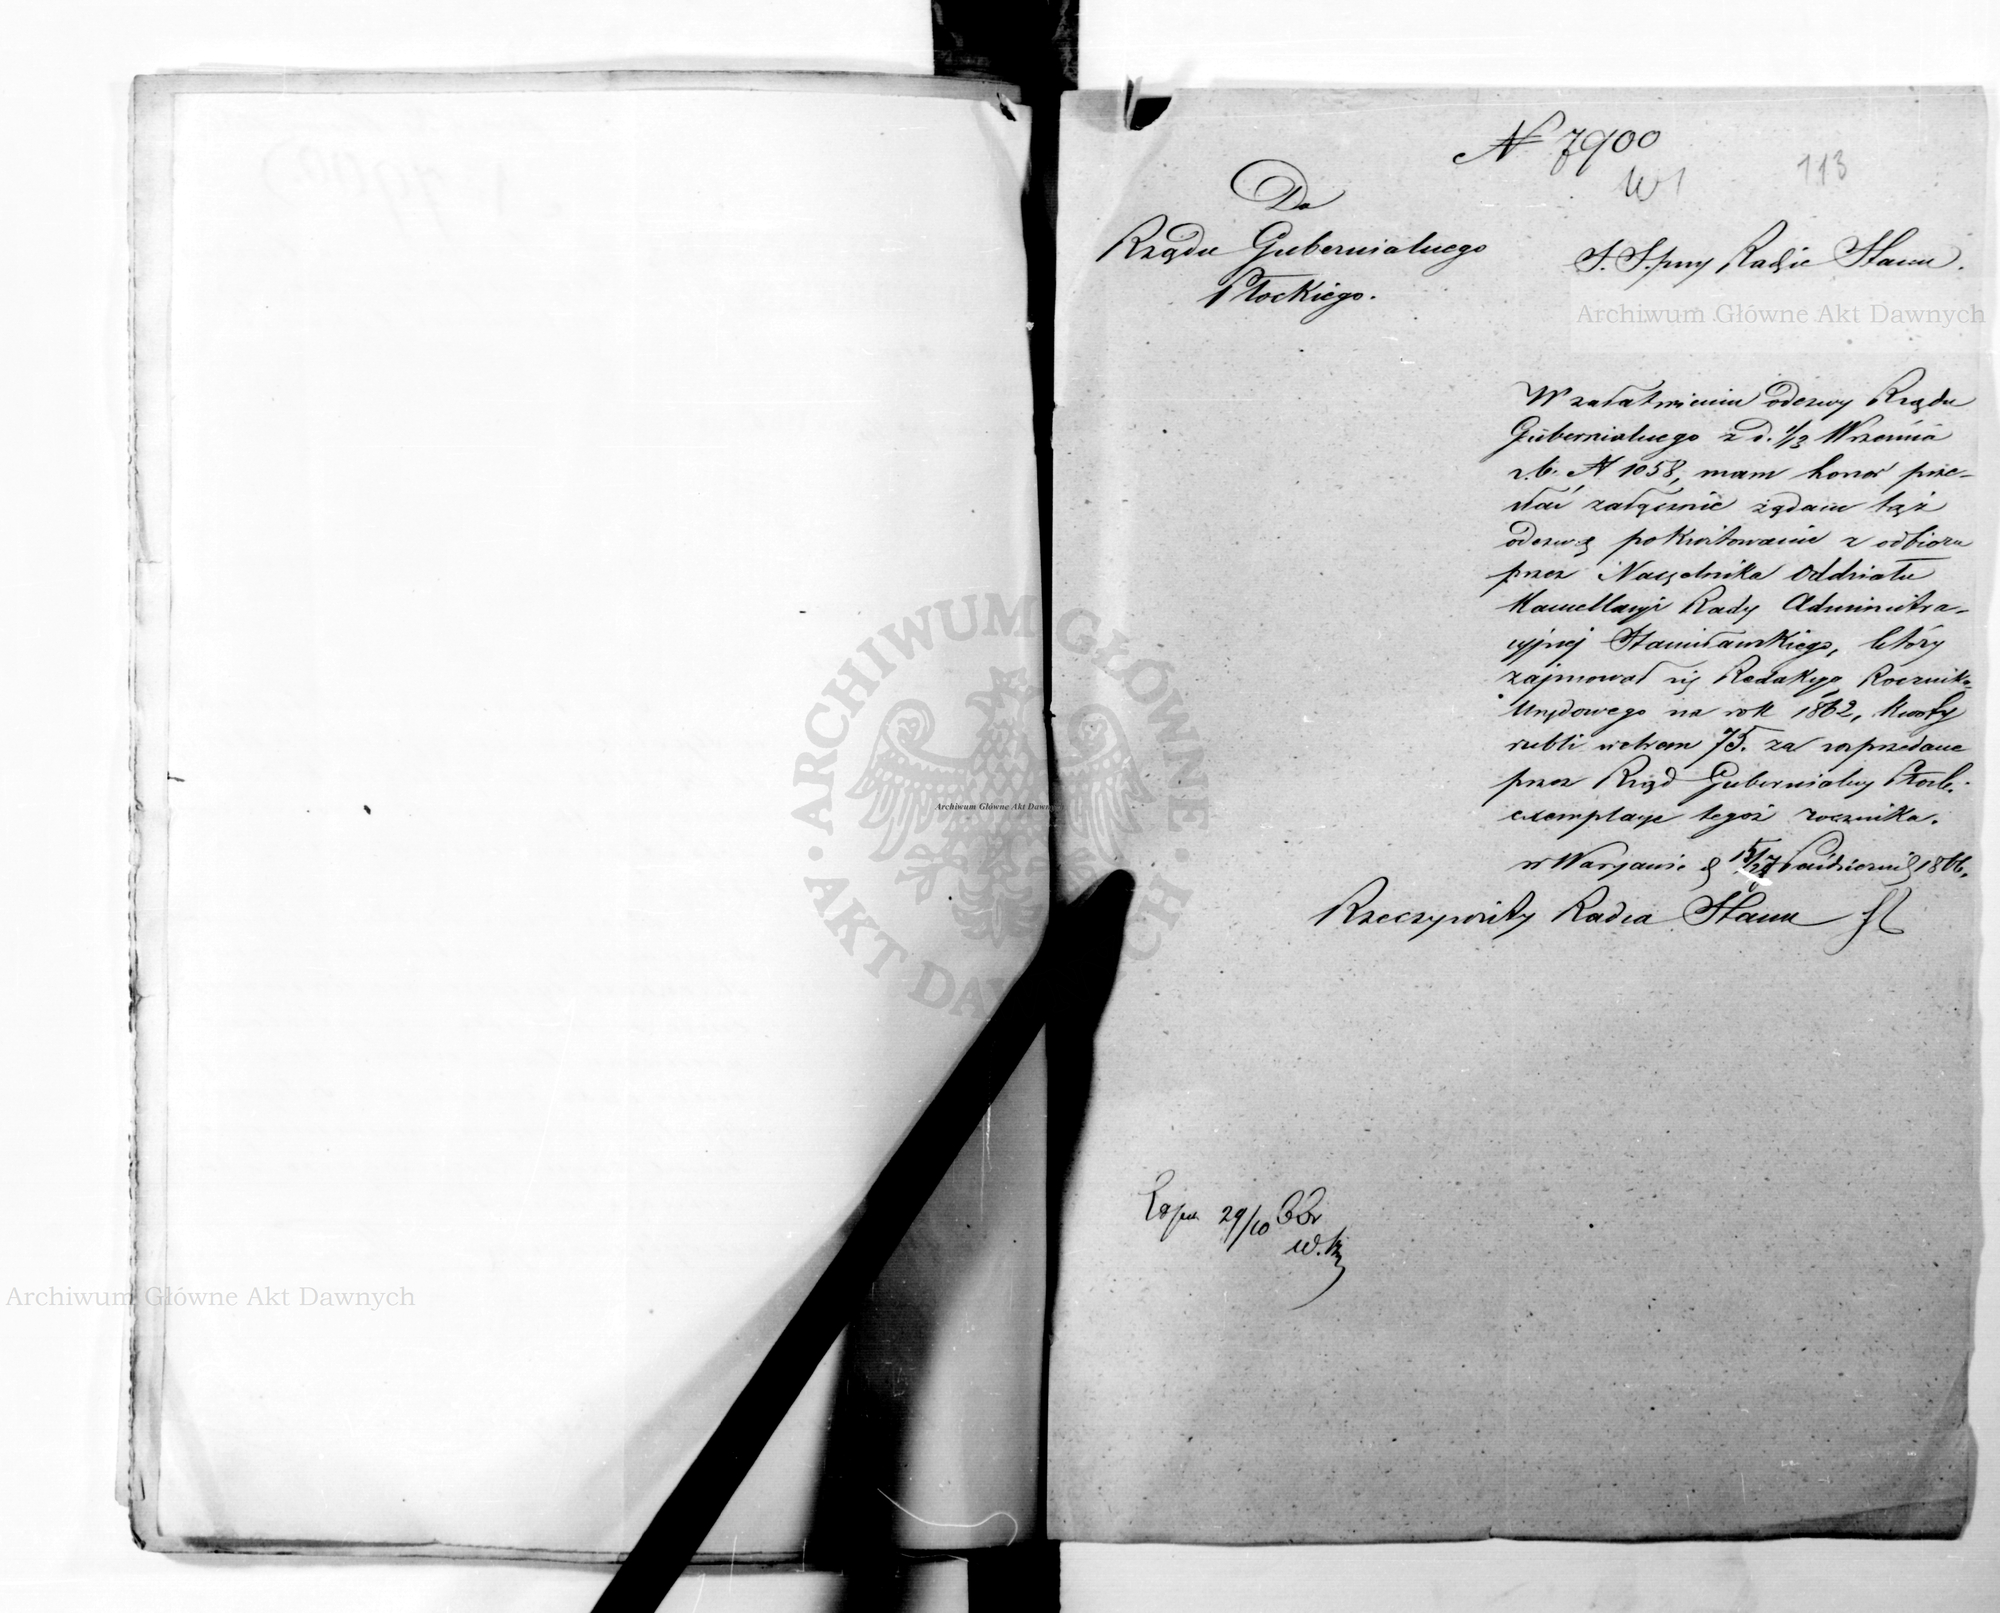 N 7900
113
Do
Rządu Gubernialnego
Płockiego.
S. S. przy Radzie Stanu.
W załatwieniu odezwy Rządu
Gubernialnego z d. 1/13 Września
r.b. N 1058, mam honor prze-
słać załącznie żądane tąż
odezwą pokwitowanie z odbioru
przez Naczelnika Oddziału
Kancellaryi Rady Administra-
cyjnej Stanisławskiego, który
zajmował się Redakcyą Rocznika
Urzędowego na rok 1862, kwoty
rubli srebrem 75. za rozprzedane
przez Rząd Gubernialny Płock.
exemplarze tegoż rocznika.
w Warszawie d 15/27 Października 1866.
Rzeczywisty Radca Stanu
29/10
Archiwum Główne Akt Dawnych
ARCHIWUM GŁÓWNE AKT DAWNYCH
Archiwum Główne Akt Dawnych
Archiwum Główne Akt Dawnych